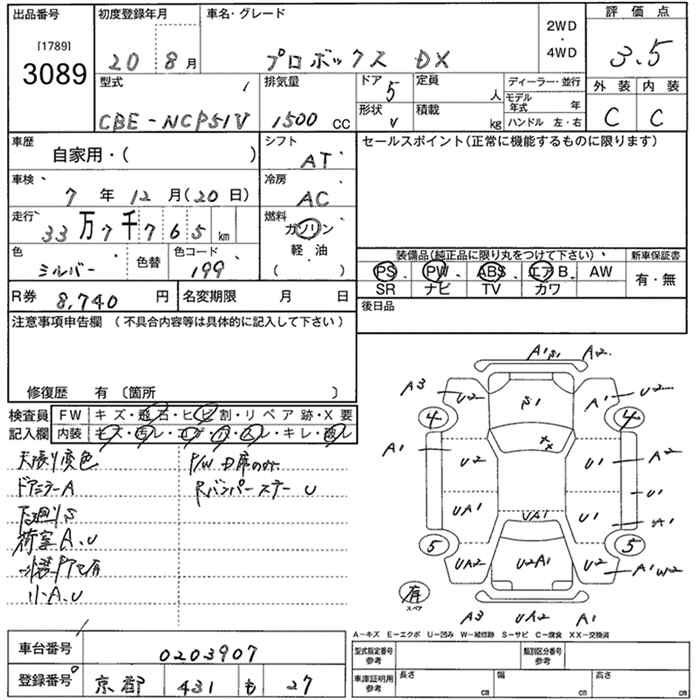 出品番号 初度登録年月 車名・グレード 2WD 評価点
[1789] ・
3089 20 8月 プロボックス DX 4WD 3.5
型式 排気量 ドア 5 定員 人 ディーラー・並行 外装 内装
モデル年式 年
CBE-NCP51V 1500 CC 形状 V 積載 kg ハンドル 左・右 C C
車歴 シフト セールスポイント(正常に機能するものに限ります)
自家用・( ) AT
車検 冷房
7年12月(20日) AC
走行 燃料
33万7千765 km ガソリン
色 色替 色コード 軽油 装備品(純正品に限り丸をつけて下さい) 新車保証書
シルバー 199 ( ) PS PW ABS エアB. AW 有・無
SR ナビ TV カワ
R券 8,740円 名変期限 月 日 後日品
注意事項申告欄 (不具合内容等は具体的に記入して下さい)
修復歴 有 〔箇所 〕
検査員 FW キズ・飛石・ヒビ割・リペア跡・X要
記入欄 内装 キズ・汚レ・コゲ・穴・スレ・キレ・破レ
天張り変色 P/W D席のみ
ドアミラーA Rバンパーステー U
下廻りS
荷室A.U
リーA.U
A1 S1 A2
A3 U2 S1 A1 U2
4 4
A1 U2 XX U1 A2
U1
UA1 UA1 U1 A1
5 5
UA2 U2A1 U2 A1 W2
有
スペア
A3 UA2 A1
A-キズ E-エクボ U-凹み W-補修跡 S-サビ C-腐食 XX-交換済
車台番号 0203907 型式指定番号 参考 類別区分番号 参考
登録番号 京都 431 も 27 車庫証明用 参考 長さ cm 幅 cm 高さ cm